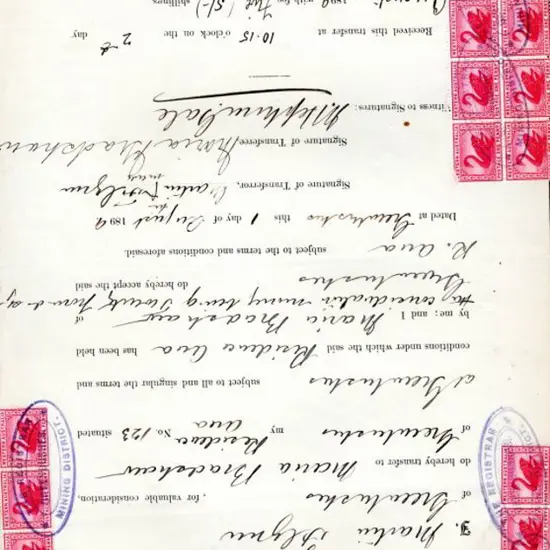 I, Martin Flynn
of Greenbushes , for valuable consideration,
do hereby transfer to Maria Bradshaw
of Greenbushes my Residence Area No. 123 situated
at Greenbushes subject to all and singular the terms and
conditions under which the said Residence Area has been held
by me; and I Maria Bradshaw of
Greenbushes do hereby accept the said
consideration money being Twenty pounds
R. Area subject to the terms and conditions aforesaid.
Dated at Greenbushes this 1 day of August 1899
Signature of Transferror, Martin Flynn
mark
Signature of Transferee, Maria Bradshaw
Witness to Signatures:
Received this transfer at 10.15 o'clock on the 2nd day
1899 with fee Five (5/-) shillings.
MINING DISTRICT.
REGISTRAR